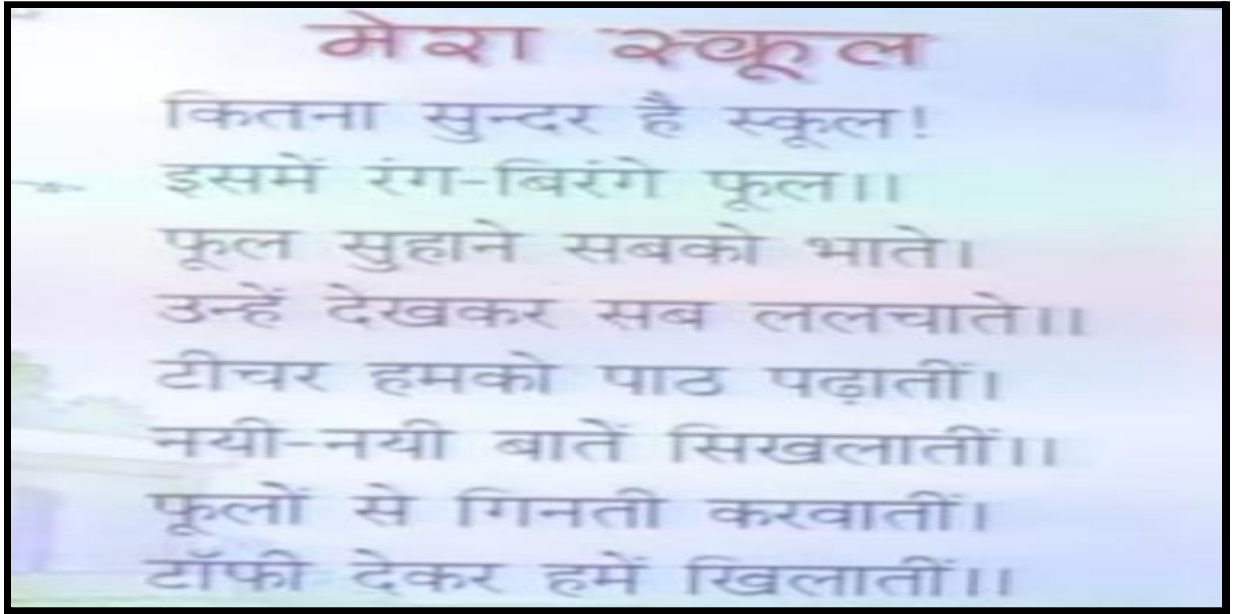 मेरा स्कूल
कितना सुन्दर है स्कूल!
इसमें रंग-बिरंगे फूल।।
फूल सुहाने सबको भाते।
उन्हें देखकर सब ललचाते।।
टीचर हमको पाठ पढ़ातीं।
नयी-नयी बातें सिखलातीं।।
फूलों से गिनती करवातीं।
टॉफी देकर हमें खिलातीं।।